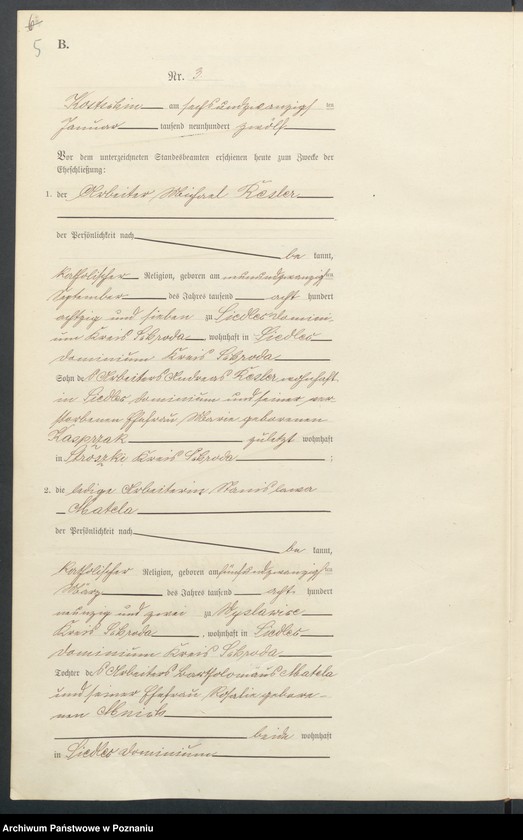 5
B.
Nr. 3
Kostschin am sechsundzwanzigsten
Januar tausend neunhundert zwölf
Vor dem unterzeichneten Standesbeamten erschienen heute zum Zwecke der
Eheschließung:
1. der Arbeiter Michael Kesler
der Persönlichkeit nach
be kannt,
katholischer Religion, geboren am neunundzwanzigsten
September des Jahres tausend acht hundert
achtzig und sieben zu Siedlec Domini-
um Kreis Schroda wohnhaft in Siedlec
dominium Kreis Schroda
Sohn des Arbeiters Andreas Kesler wohnhaft
in Siedlec dominium und seiner ver-
storbenen Ehefrau Marie geborenen
Kasprzak zuletzt wohnhaft
in Stroszki Kreis Schroda ;
2. die ledige Arbeiterin Stanislawa
Matela
der Persönlichkeit nach
be kannt,
katholischer Religion, geboren am fünfundzwanzigsten
März des Jahres tausend acht hundert
neunzig und zwei zu Wyslawice
Kreis Schroda , wohnhaft in Siedlec
dominium Kreis Schroda
Tochter des Arbeiters Bartholomäus Matela
und seiner Ehefrau Rosalie gebore-
nen
beide wohnhaft
in Siedlec dominium
Archiwum Państwowe w Poznaniu